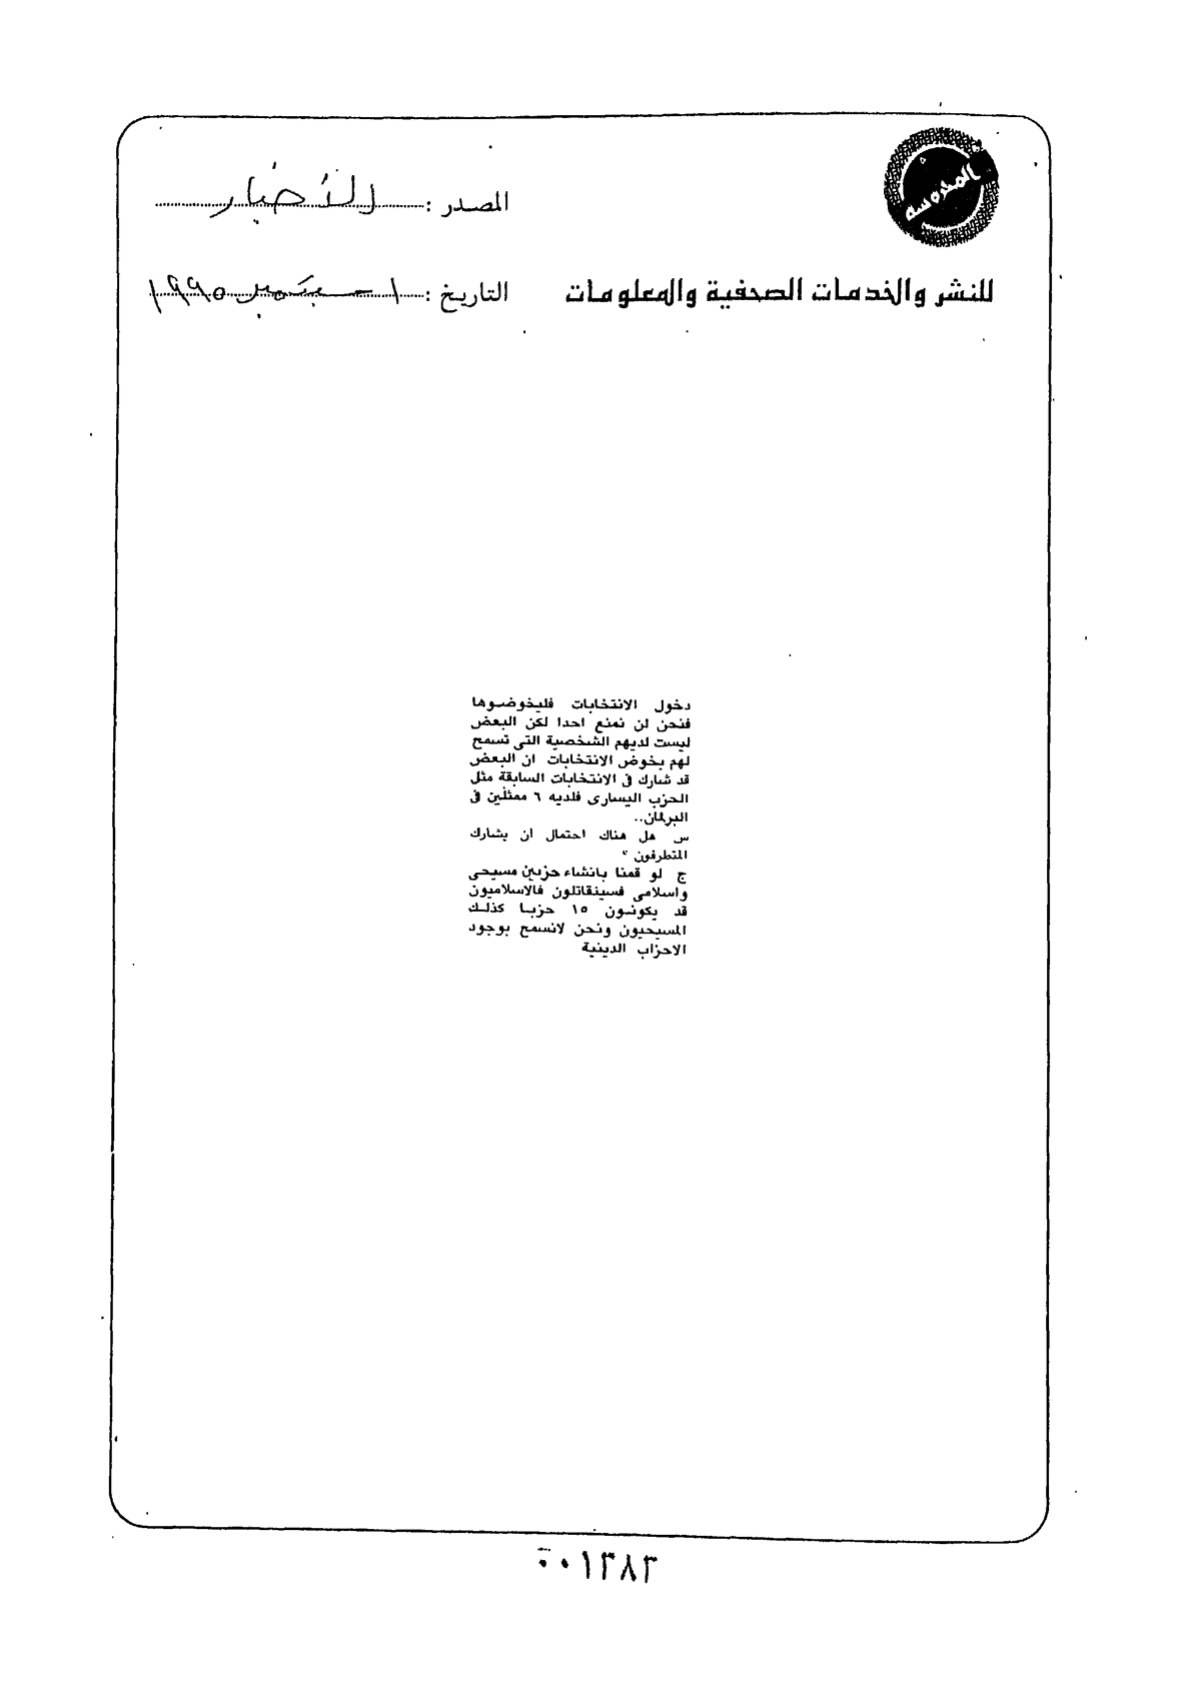 المحروسة
المصدر : الأخبار
للنشر والخدمات الصحفية والمعلومات
التاريخ : ١ سبتمبر ١٩٩٥
دخول الانتخابات فليخوضوها
فنحن لن نمنع احدا لكن البعض
ليست لديهم الشخصية التى تسمح
لهم بخوض الانتخابات ان البعض
قد شارك فى الانتخابات السابقة مثل
الحزب اليسارى فلديه ٦ ممثلين فى
البرلمان..
س هل هناك احتمال ان يشارك
المتطرفون ؟
ج لو قمنا بانشاء حزبين مسيحى
واسلامى فسيتقاتلون فالاسلاميون
قد يكونون ١٥ حزبا كذلك
المسيحيون ونحن لانسمح بوجود
الاحزاب الدينية
٠٠١٣٨٣